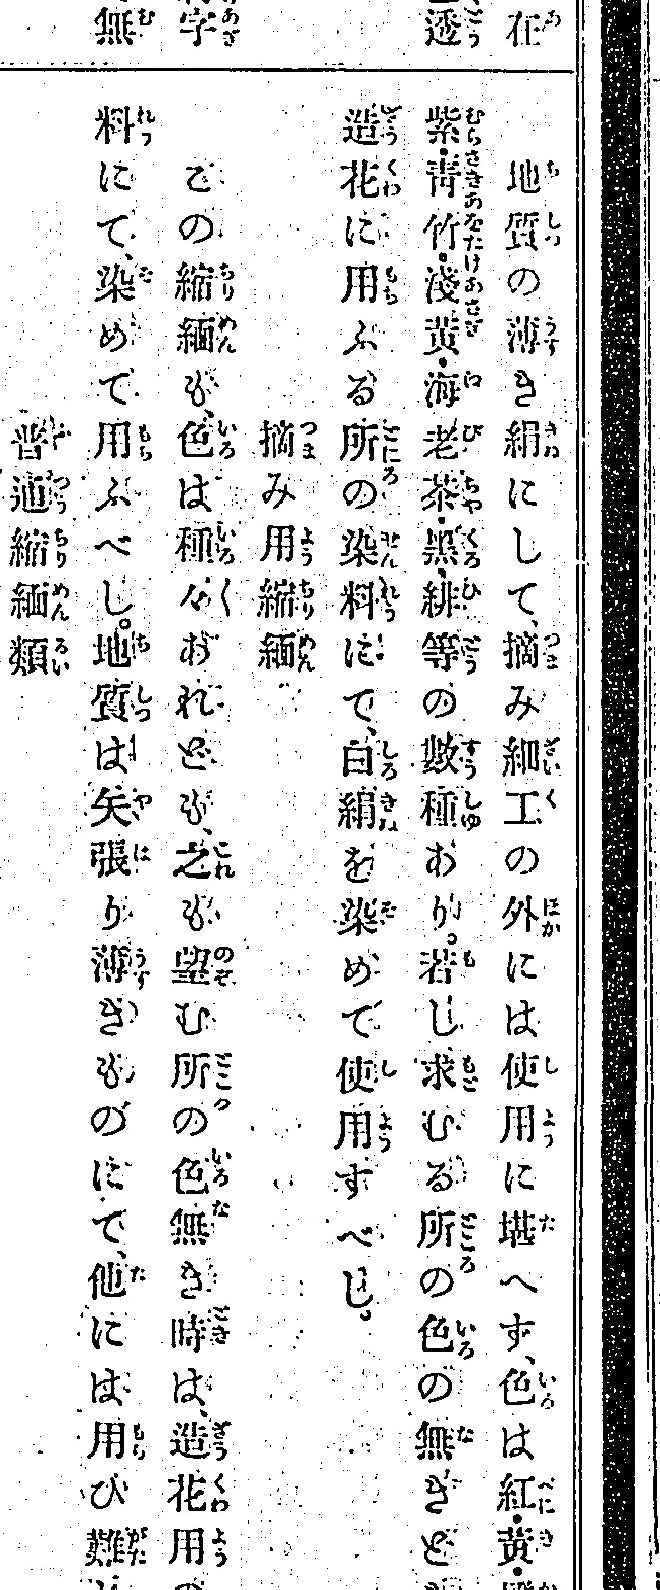 在
透
字
無
地質の薄き絹にして、摘み細工の外には使用に堪へず、色は紅・黄・
紫・靑竹・淺黄・海老茶・黑・緋等の數種あり。若し求むる所の色の無きと
造花に用ふる所の染料にて、白絹を染めて使用すべし。
摘み用縮緬
この縮緬も、色は種々あれども、之も望む所の色無き時は、造花用
料にて、染めて用ふべし。地質は矢張り薄きものにて、他には用ひ難
普通縮緬類